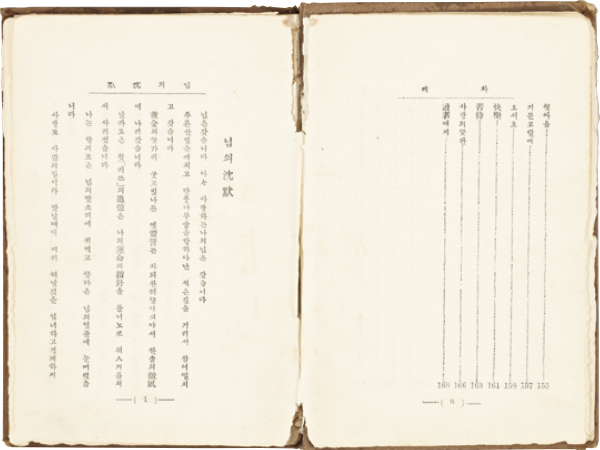 차례
155
거문고탈ᄯᅢ 157
오서요 158
快樂 161
苦待 163
사랑의ᄭᅳᆺ판 166
讀者에게 168
( 8 )
님의沈默
님의沈默
님은갓슴니다 아々 사랑하는나의님은 갓슴니다
푸른산빗을ᄭᅢ치고 단풍나무숩을향하야난 적은길을 거러서 참어ᄯᅥᆯ치
고 갓슴니다
黃金의ᄭᅩᆺ가티 굿고빗나든 옛盟誓는 차듸찬ᄯᅴᄭᅳᆯ이되야서 한숨의微風
에 나러갓슴니다
날카로은 첫「키쓰」의追憶은 나의運命의指針을 돌너노코 뒤ㅅ거름처
서 사러젓슴니다
나는 향긔로은 님의말소리에 귀먹고 ᄭᅩᆺ다은 님의얼골에 눈머럿슴
니다
사랑도 사람의일이라 맛날ᄯᅢ에 미리 ᄯᅥ날것을 염녀하고경계하지
( 1 )